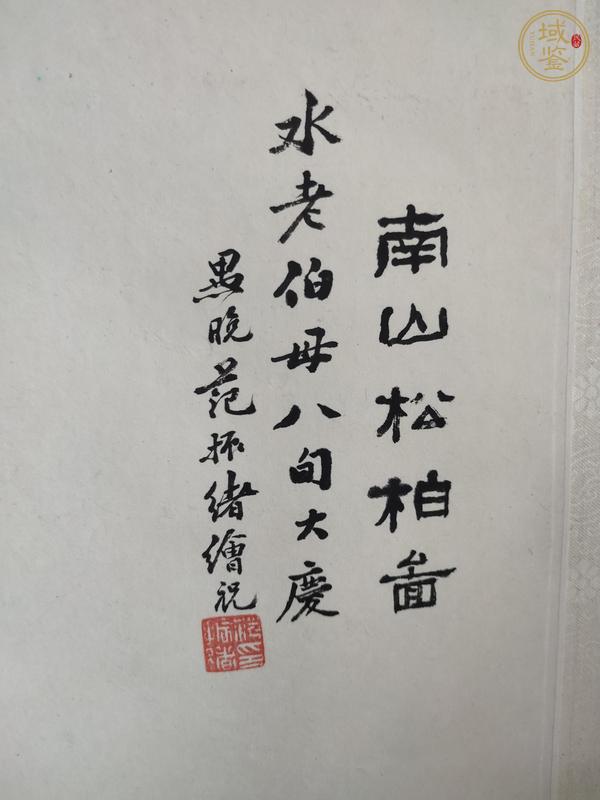 南山松柏啚
水老伯母八旬大慶
愚晚范振緒繪祝
域鉴
YUJIAN